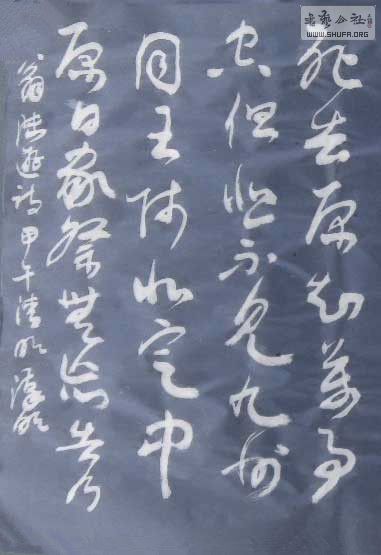 死去原知萬事
空但悲不见九州
同王师北定中
原日家祭無忘告乃
翁陆游诗甲午清明
书艺公社
WWW.SHUFA.ORG